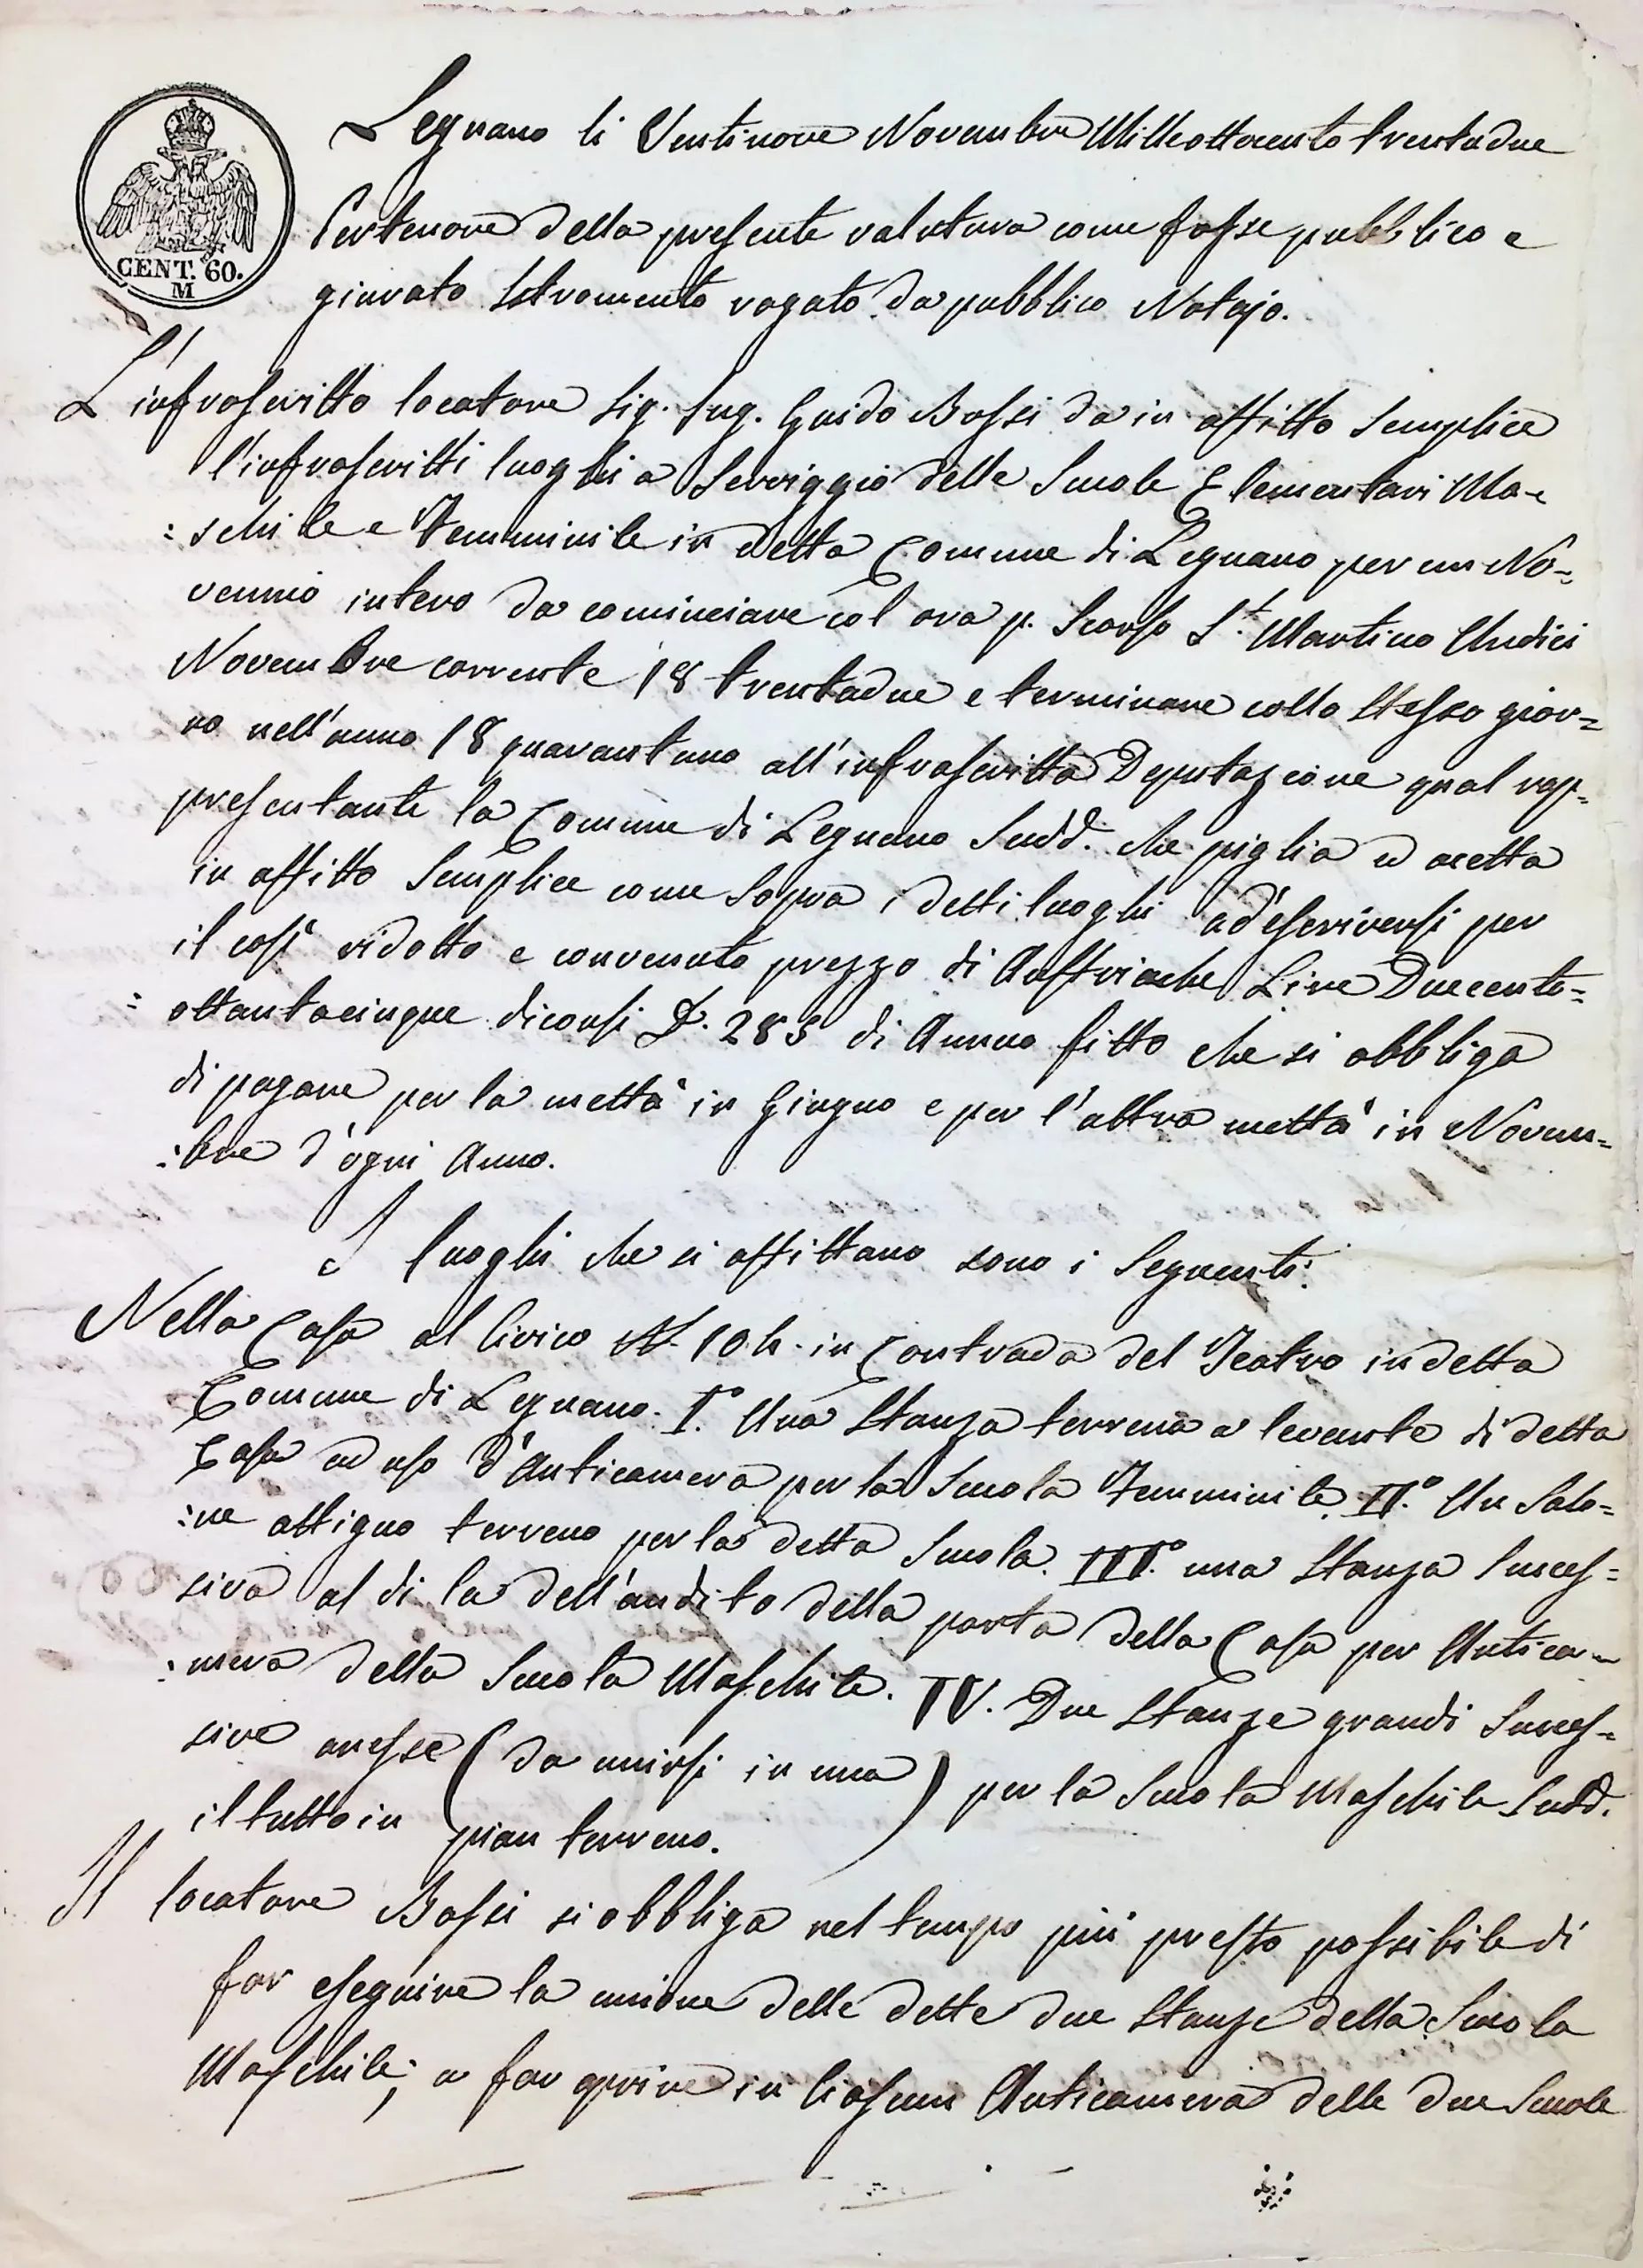 Legnano li Ventinove Novembre Milleottocento trentadue
CENT. 60.
M
Pertenore della presente valitura come fosse pubblico e
giurato Istromento rogato da pubblico Notajo.
L'infrascritto locatore Sig. Ing. Guido Bossi da in affitto Semplice
l'infrascritti luoghi a Serviggio delle Scuole Elementari Ma-
:schile e Femminile in detta Comune di Legnano per un No-
vennio intero da cominciare col ora p. Scorso S.t Martino Undici
Novembre corrente 18 trentadue e terminare collo Stesso gior=
no nell'anno 18 quarantuno all'infrascritta Deputazione qual rap=
presentante la Comune di Legnano Sudd. che piglia ed acetta
in affitto Semplice come Sopra i detti luoghi ad'escriversi per
il così ridotto e convenuto prezzo di Austriache Lire Duecento=
:ottantacinque diconsi £. 285 di Annuo fitto che si obbliga
di pagare per la mettà in Giugno e per l'altra mettà in Novem=
:bre d'ogni Anno.
I luoghi che si affittano sono i Seguenti:
Nella Casa al Civico N. 104. in Contrada del Teatro in detta
Comune di Legnano. I.° Una Stanza terrena a levante di detta
Casa ad uso d'Anticamera per la Scuola Femminile. II.° Un Salo=
:ne attiguo terreno per la detta Scuola. III.° una Stanza Succes=
siva al di la dell'andito della porta della Casa per Antica-
:mera della Scuola Maschile. IV. Due Stanze grandi Succes=
sive anesse (da unirsi in una) per la Scuola Maschile Sudd.
il tutto in pian terreno.
Il locatore Bossi si obbliga nel tempo più presto possibile di
far eseguire la unione delle dette due Stanze della Scuola
Maschile; a far aprire in ciascun Anticamera delle due Scuole